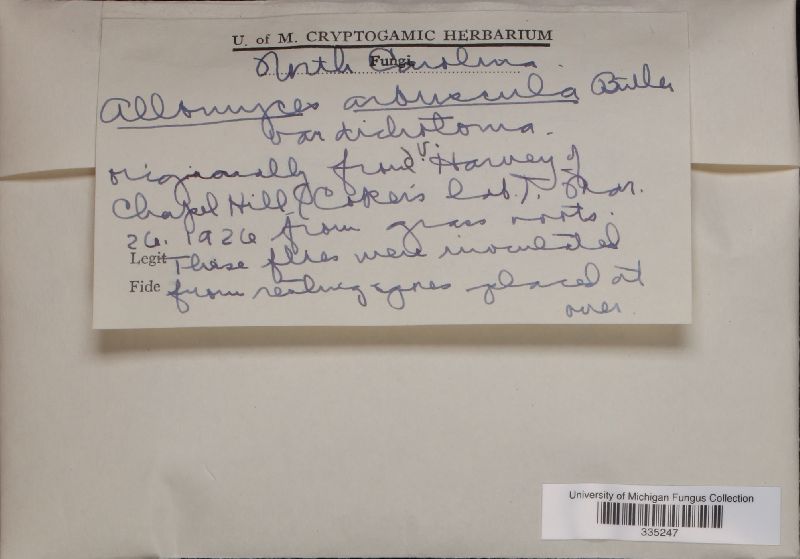 U. of M. CRYPTOGAMIC HERBARIUM
Fungi
North Carolina.
Allomyces arbuscula Butler
var dichotoma.
originally from J.V. Harvey of
Chapel Hill (Coker's Lab.). Mar.
26. 1926 from grass roots.
Legit These flies were inoculated
Fide from resting spores placed at
over.
University of Michigan Fungus Collection
335247